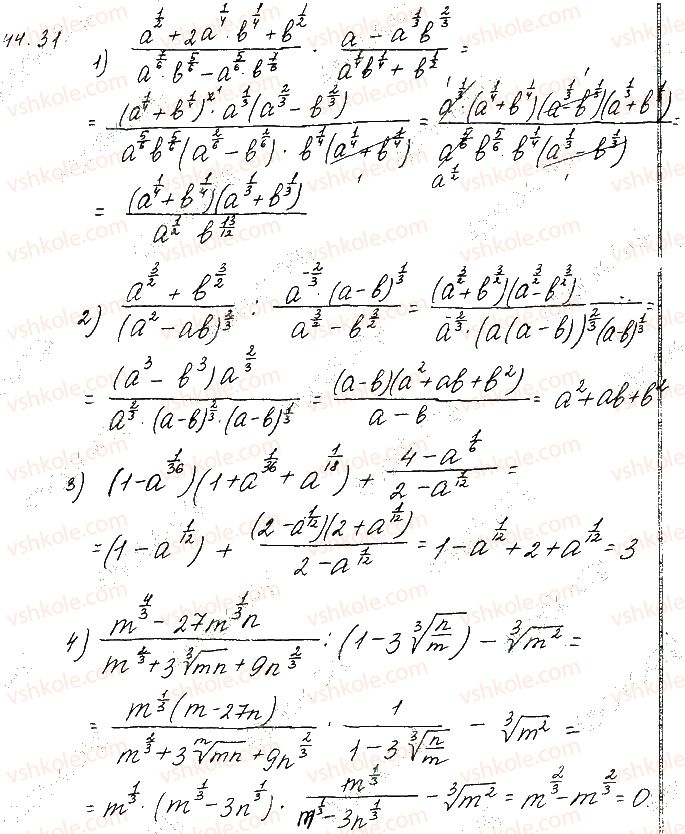 44.31
1) (a^{1/2} + 2a^{1/4} · b^{1/4} + b^{1/2}) / (a^{7/6} b^{5/6} − a^{5/6} · b^{7/6}) · (a − a^{1/3} b^{2/3}) / (a^{1/4} b^{1/4} + b^{1/2}) =
= ((a^{1/4} + b^{1/4})^{2} · a^{1/3} (a^{2/3} − b^{2/3})) / (a^{5/6} b^{5/6} (a^{2/6} − b^{2/6}) · b^{1/4} (a^{1/4} + b^{1/4})) = (a^{1/3} · (a^{1/4} + b^{1/4})(a^{1/3} − b^{1/3})(a^{1/3} + b^{1/3})) / (a^{5/6} b^{5/6} · b^{1/4} (a^{1/3} − b^{1/3})) =
a^{1/2}
= ((a^{1/4} + b^{1/4})(a^{1/3} + b^{1/3})) / (a^{1/2} b^{13/12})
2) (a^{3/2} + b^{3/2}) / (a^2 − ab)^{2/3} : (a^{-2/3} · (a−b)^{1/3}) / (a^{3/2} − b^{3/2}) = ((a^{3/2} + b^{3/2})(a^{3/2} − b^{3/2})) / (a^{-2/3} · (a(a−b))^{2/3} (a−b)^{1/3}) =
= ((a^3 − b^3) a^{2/3}) / (a^{2/3} · (a−b)^{2/3} · (a−b)^{1/3}) = ((a−b)(a^2 + ab + b^2)) / (a − b) = a^2 + ab + b^2
3) (1 − a^{1/36})(1 + a^{1/36} + a^{1/18}) + (4 − a^{1/6}) / (2 − a^{1/12}) =
= (1 − a^{1/12}) + ((2 − a^{1/12})(2 + a^{1/12})) / (2 − a^{1/12}) = 1 − a^{1/12} + 2 + a^{1/12} = 3
4) (m^{4/3} − 27m^{1/3} n) / (m^{2/3} + 3∛(mn) + 9n^{2/3}) : (1 − 3∛(n/m)) − ∛(m^2) =
= (m^{1/3} (m − 27n)) / (m^{2/3} + 3∛(mn) + 9n^{2/3}) · 1 / (1 − 3∛(n/m)) − ∛(m^2) =
= m^{1/3} · (m^{1/3} − 3n^{1/3}) · m^{1/3} / (m^{1/3} − 3n^{1/3}) − ∛(m^2) = m^{2/3} − m^{2/3} = 0